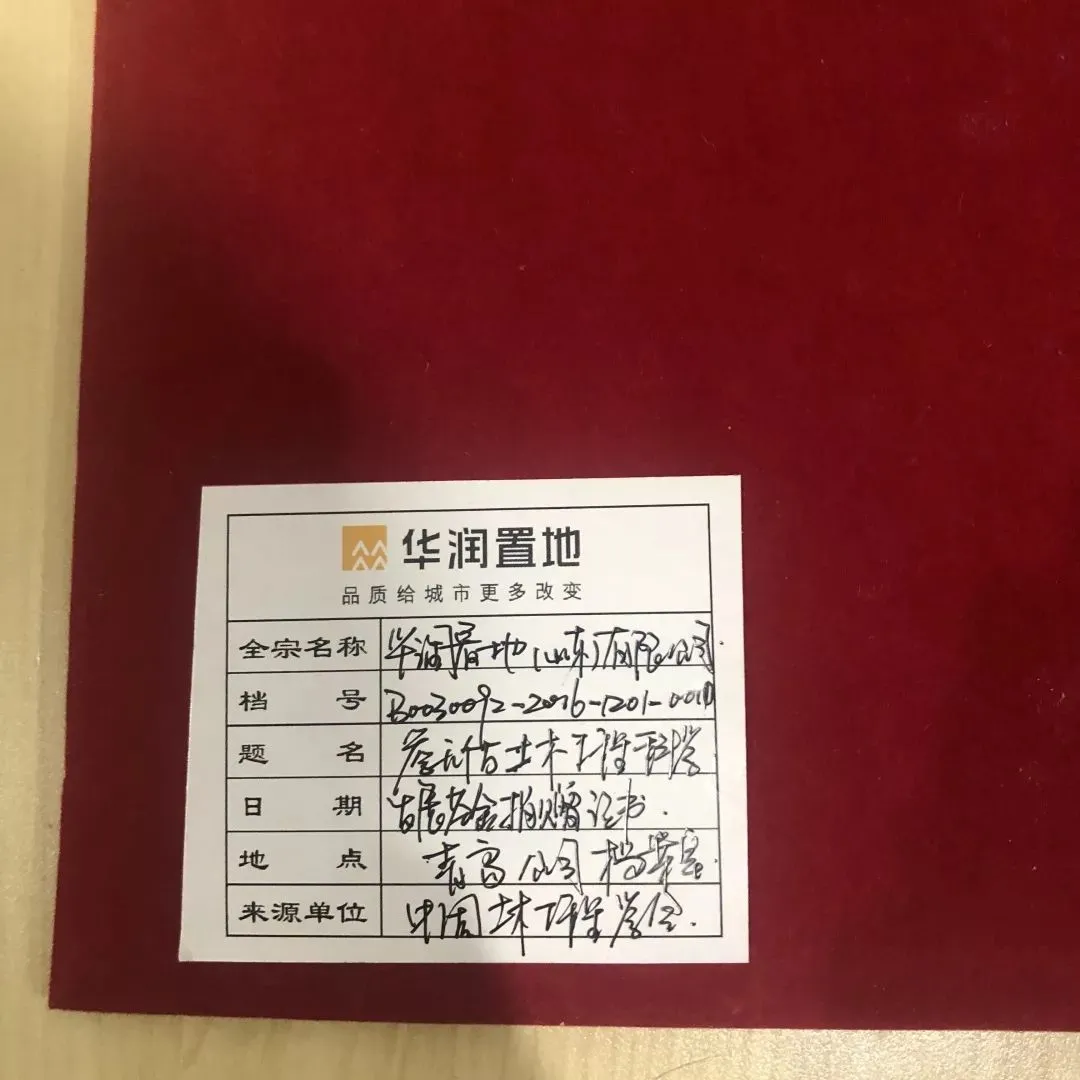 华润置地
品质给城市更多改变
全宗名称 华润置地(山东)有限公司
档号 B0030092-2016-1201-0010
题名 詹天佑土木工程科学
日期 发展基金捐赠证书.
地点 青岛公司档案室.
来源单位 中国土木工程学会.